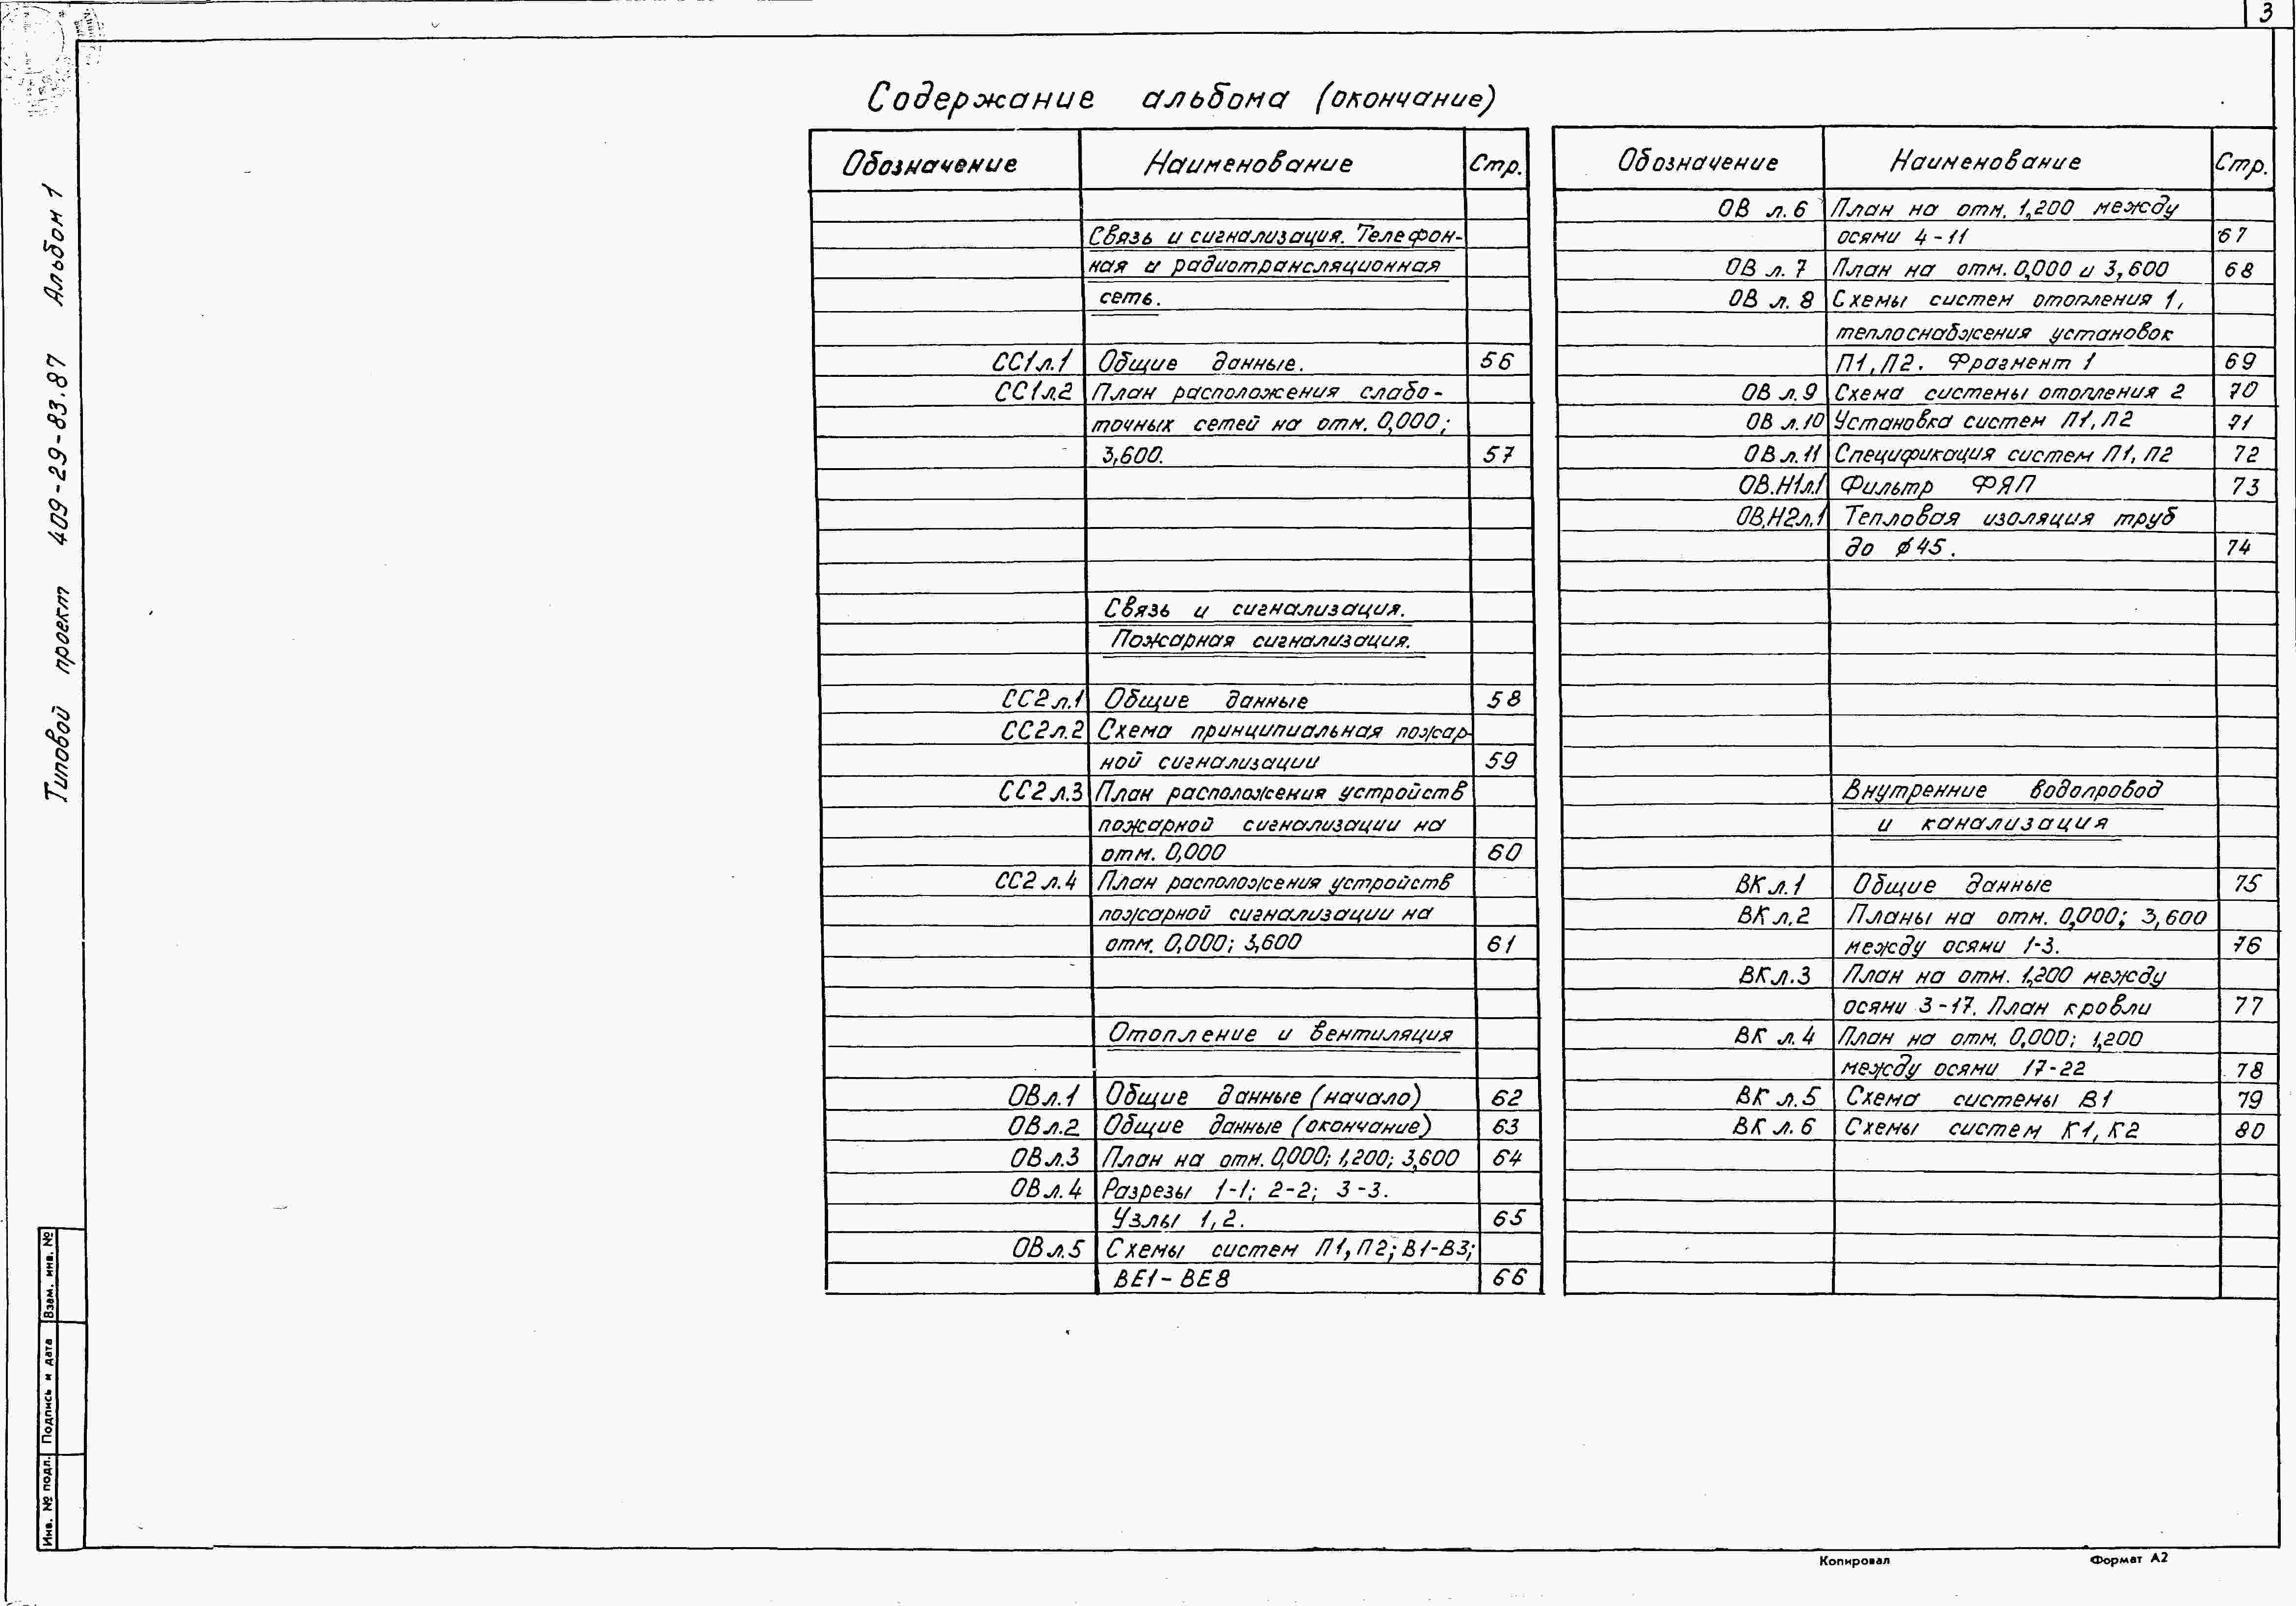 3
Содержание альбома (окончание)
Обозначение Наименование Стр.
Связь и сигнализация. Телефон-
ная и радиотрансляционная
сеть.
СС1л.1 Общие данные. 56
СС1л.2 План расположения слабо-
точных сетей на отм. 0,000;
3,600. 57
Связь и сигнализация.
Пожарная сигнализация.
СС2л.1 Общие данные 58
СС2л.2 Схема принципиальная пожар-
ной сигнализации 59
СС2л.3 План расположения устройств
пожарной сигнализации на
отм. 0,000 60
СС2л.4 План расположения устройств
пожарной сигнализации на
отм. 0,000; 3,600 61
Отопление и вентиляция
ОВл.1 Общие данные (начало) 62
ОВл.2 Общие данные (окончание) 63
ОВл.3 План на отм. 0,000; 1,200; 3,600 64
ОВл.4 Разрезы 1-1; 2-2; 3-3.
Узлы 1, 2. 65
ОВл.5 Схемы систем П1, П2; В1-В3;
ВЕ1-ВЕ8 66
Обозначение Наименование Стр.
ОВ л.6 План на отм. 1,200 между
осями 4-11 67
ОВ л.7 План на отм. 0,000 и 3,600 68
ОВ л.8 Схемы систем отопления 1,
теплоснабжения установок
П1, П2. Фрагмент 1 69
ОВ л.9 Схема системы отопления 2 70
ОВ л.10 Установка систем П1, П2 71
ОВ л.11 Спецификация систем П1, П2 72
ОВ.Н1л.1 Фильтр ФЯП 73
ОВ.Н2л.1 Тепловая изоляция труб
до ϕ45. 74
Внутренние водопровод
и канализация
ВК л.1 Общие данные 75
ВК л.2 Планы на отм. 0,000; 3,600
между осями 1-3. 76
ВК л.3 План на отм. 1,200 между
осями 3-17. План кровли 77
ВК л.4 План на отм. 0,000; 1,200
между осями 17-22 78
ВК л.5 Схема системы В1 79
ВК л.6 Схемы систем К1, К2 80
Типовой проект 409-29-83.87 Альбом 1
Инв. № подл. Подпись и дата Взам. инв. №
Копировал Формат А2